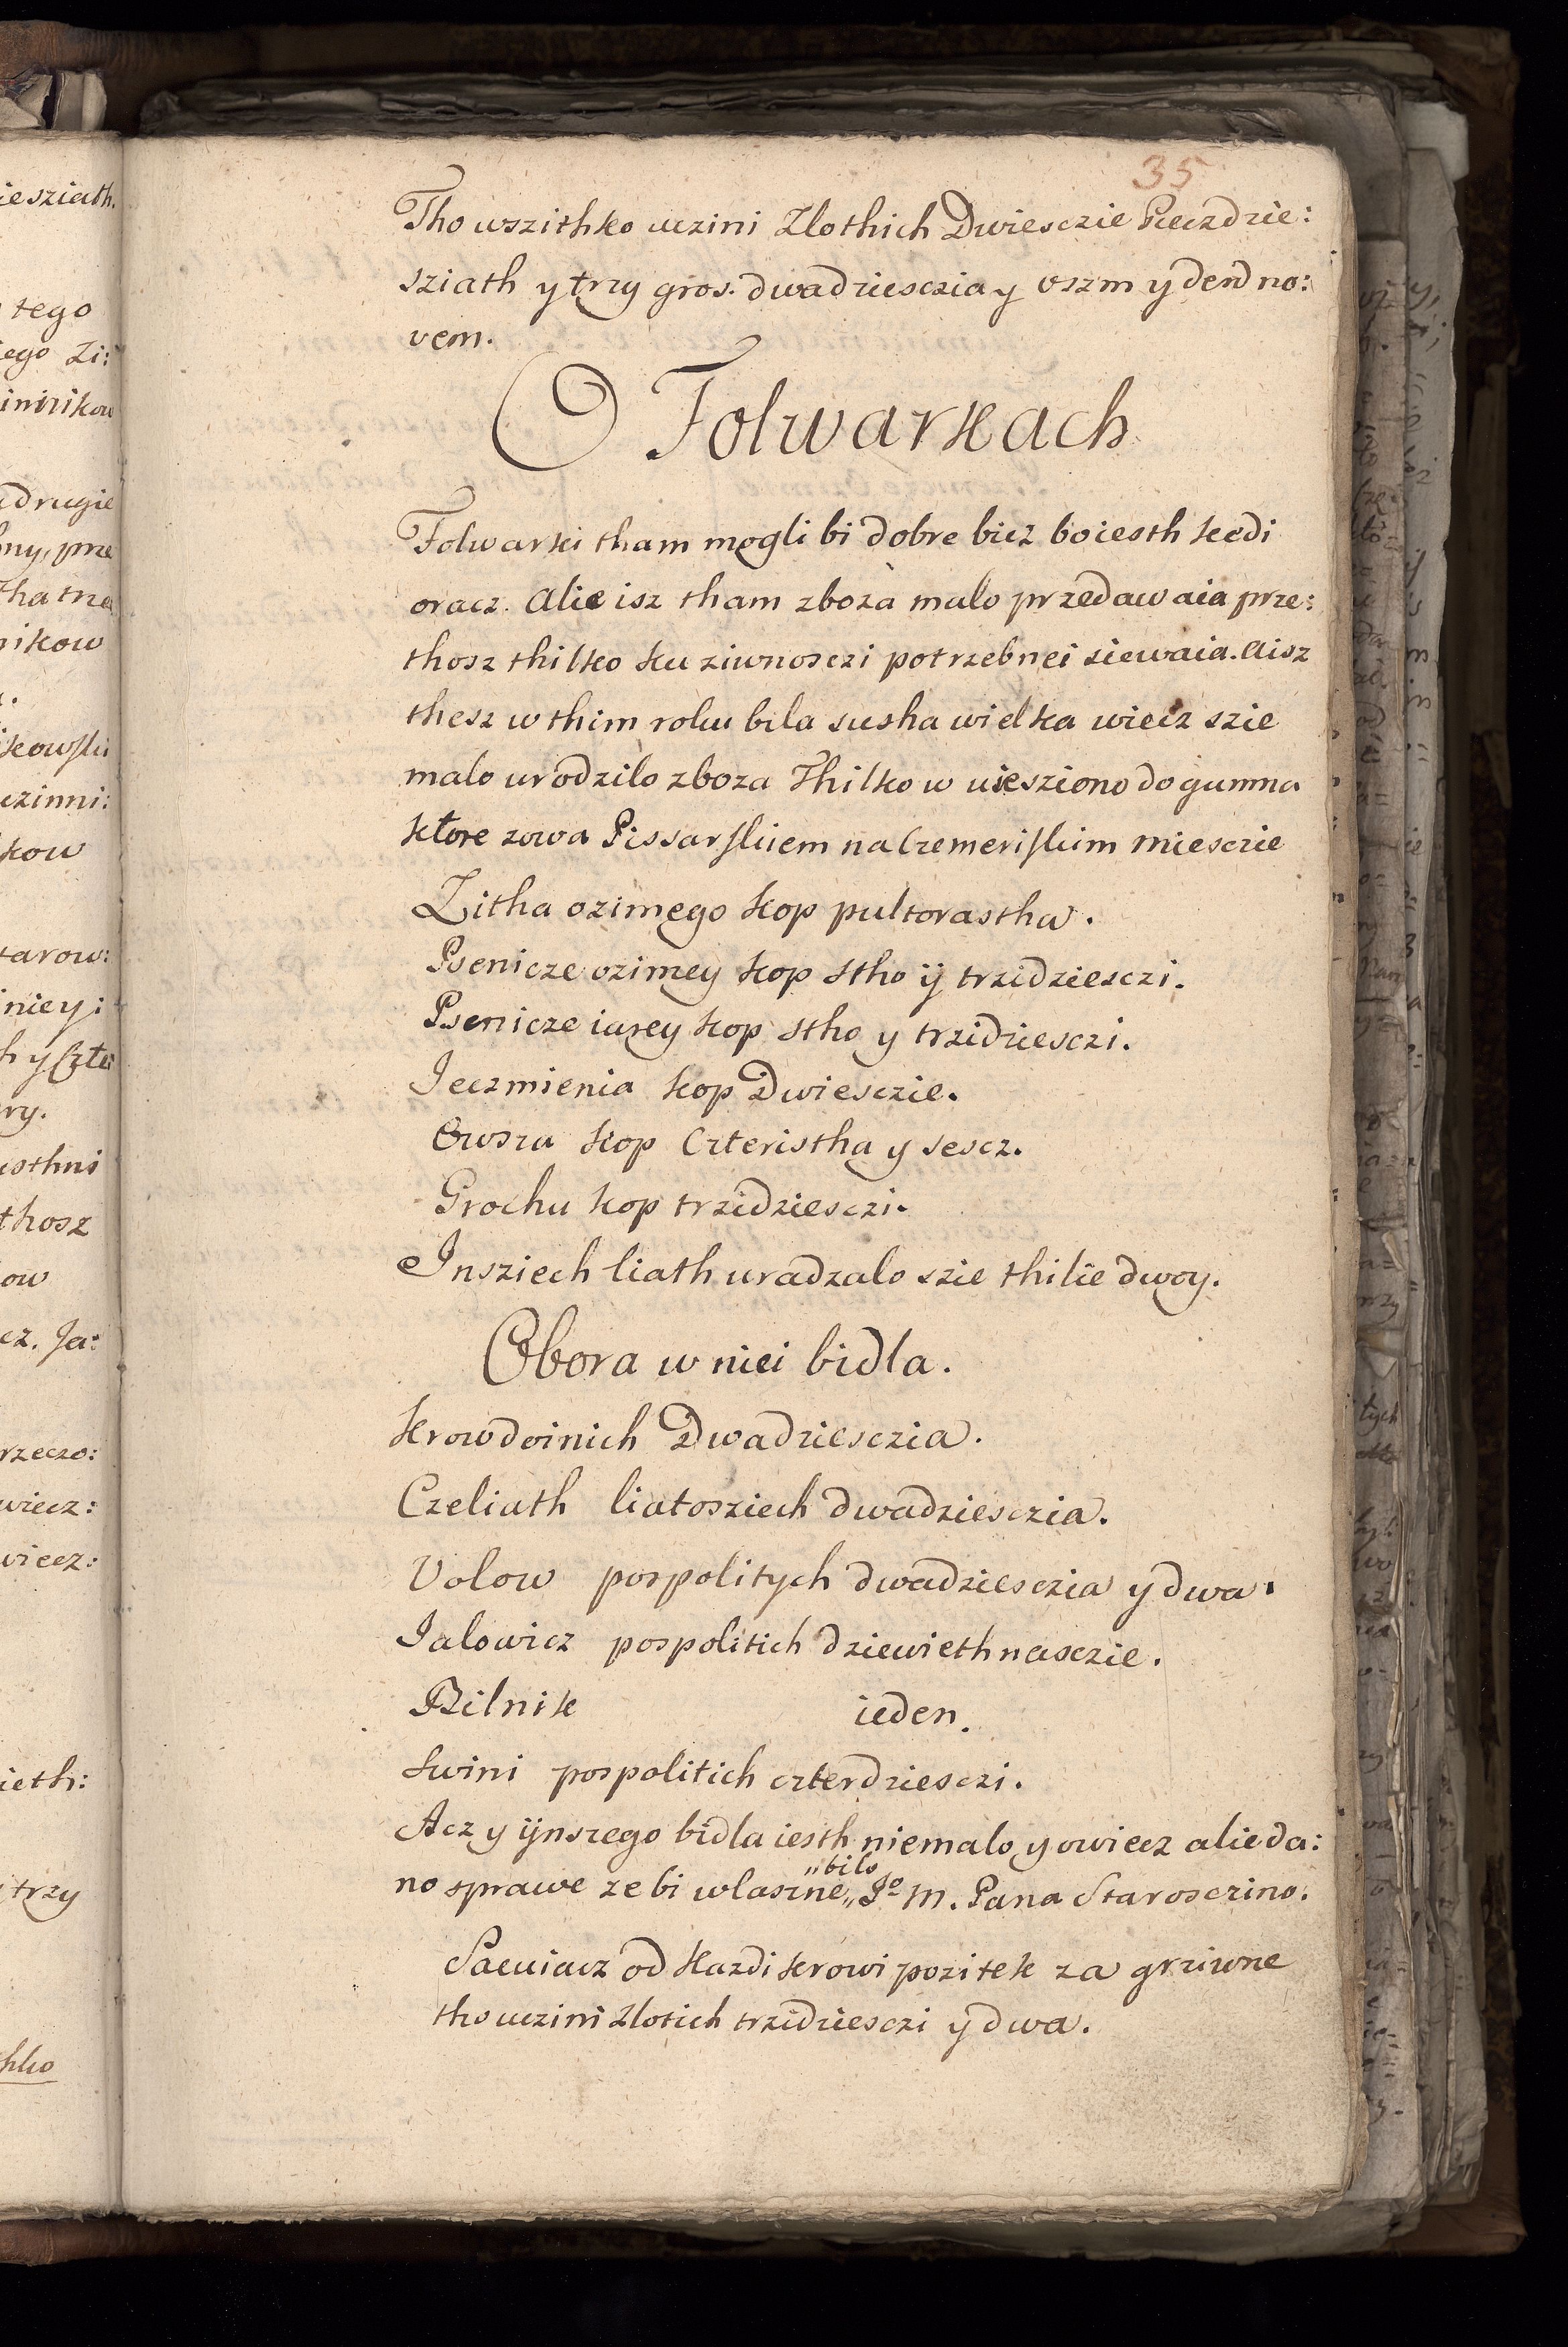 35
Tho wszithko uczini Zlothich Dwiesczie Pieczdzie:
sziath y trzy gros. dwadziesczia y oszm y den no:
vem.
O Folwarkach
Folwarki tham mogli bi dobre bicz bo iesth kedi
oracz. Alie isz tham zboza malo przedawaia prze:
thosz thilko ku ziwnosczi potrzebnei siewaia. Aisz
thesz w thim roku bila susha wielka wiecz szie
malo urodzilo zboza Thilko w wiesziono do gumna
ktore zowa Pissarskiem na Czemeriskim miesczie
Zitha ozimego kop pultorastha.
Psenicze ozimey kop stho ÿ trzidziesczi.
Psenicze iarey kop stho y trzidziesczi.
Ieczmienia kop Dwiesczie.
Owsza kop Czteristha y sescz.
Grochu kop trzidziesczi.
Insziech liath uradzalo szie thilie dwoy.
Obora w niei bidla.
Krow doinich Dwadziesczia.
Czeliath liatosziech dwadziesczia.
Volow pospolitych dwadziesczia y dwa.
Ialowicz pospolitich dziewiethnasczie.
Bilnik ieden.
Swini pospolitich czterdziesczi.
Acz y ÿnszego bidla iesth niemalo y owiecz alie da:
no sprawe ze bi wlaszne „bilo„ Jº M. Pana Starosczino.
Sacuiacz od kazdi krowi pozitek za grziwne
tho uczini zlotich trzidziesczi y dwa.
iesziath.
tego
iego Zi:
adrugie
Tha trze
nikow
uczinni:
kow
tarow:
niey:
ry.
usthni
thosz
ow
cz. Ja:
rzeczo:
wiecz:
wiecz:
ieth:
trzy